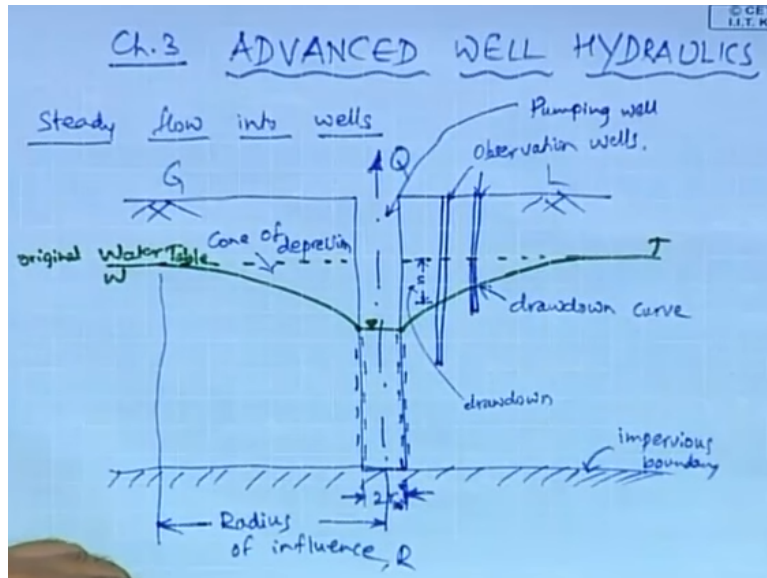 © CET
I.I.T. K
Ch.3 ADVANCED WELL HYDRAULICS
Steady flow into wells
Pumping well
Observation wells.
G
Q
L
original Water Table
Cone of depression
W
T
s
drawdown curve
drawdown
impervious boundary
Radius of influence, R